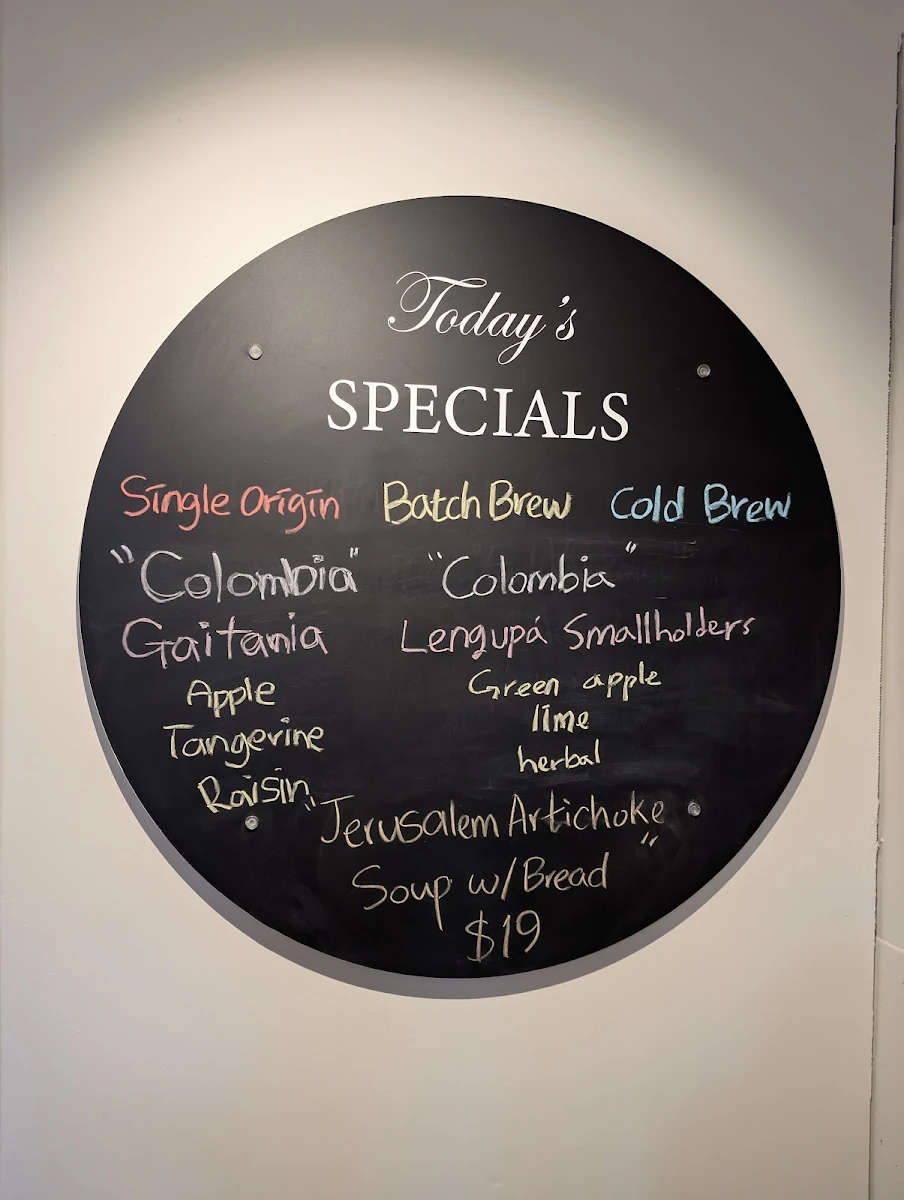 Today's
SPECIALS
Single Origin Batch Brew Cold Brew
"Colombia" "Colombia"
Gaitania Lengupá Smallholders
Apple Green apple
Tangerine lime
Raisin herbal
"Jerusalem Artichoke
Soup w/Bread"
$19